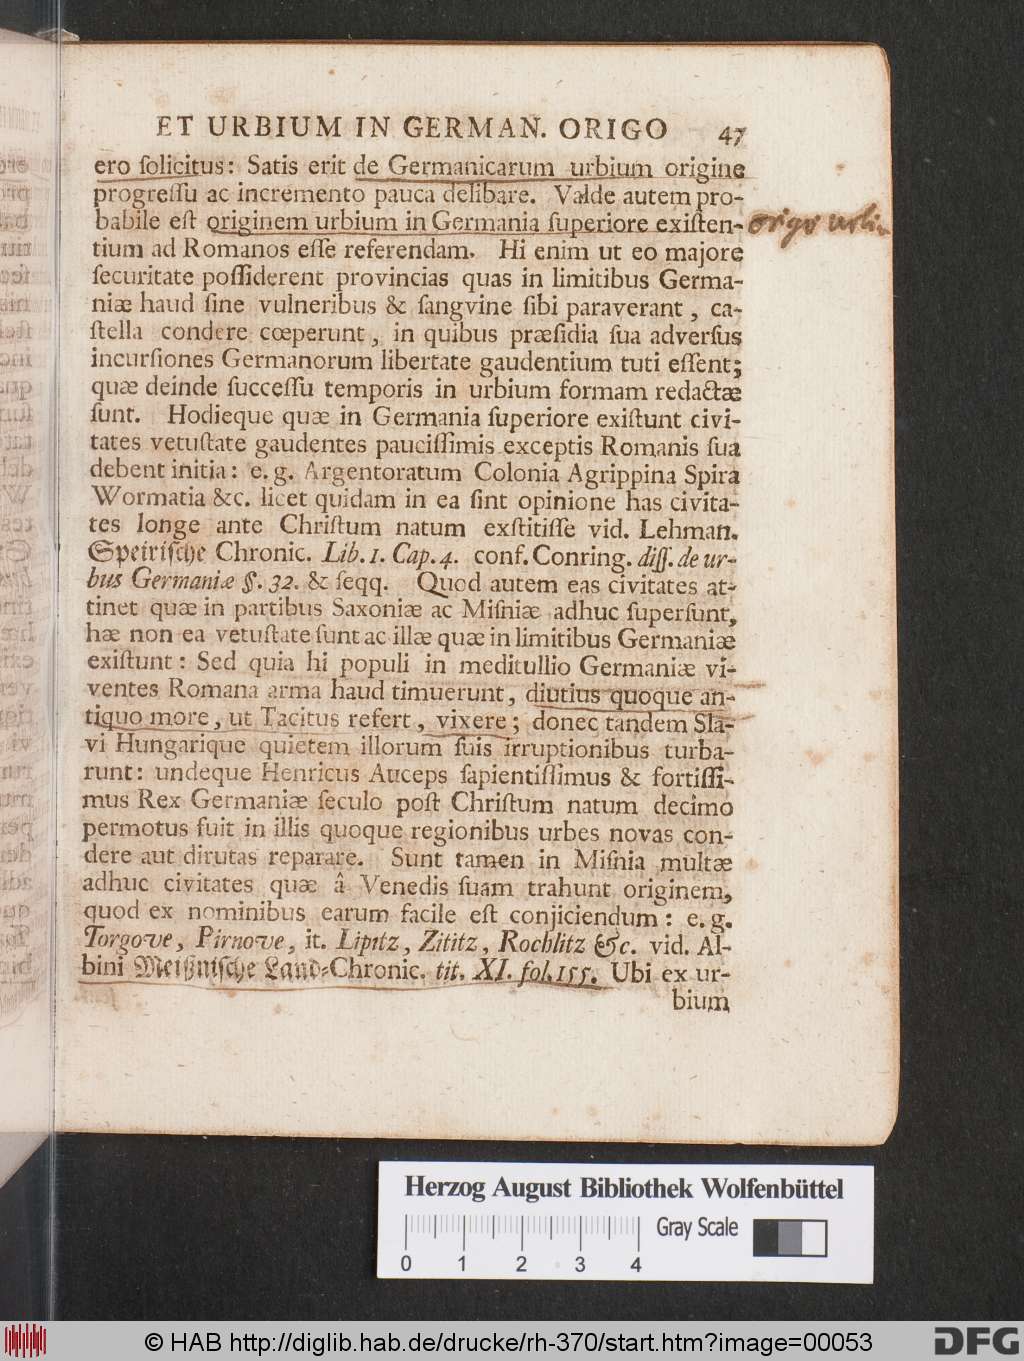 ET URBIUM IN GERMAN. ORIGO 47
ero ſolicitus: Satis erit de Germanicarum urbium origine
progreſſu ac incremento pauca delibare. Valde autem pro-
babile eſt originem urbium in Germania ſuperiore exiſten-
origo urbiu
tium ad Romanos eſſe referendam. Hi enim ut eo majore
ſecuritate poſſiderent provincias quas in limitibus Germa-
niæ haud ſine vulneribus & ſangvine ſibi paraverant, ca-
ſtella condere cœperunt, in quibus præſidia ſua adverſus
incurſiones Germanorum libertate gaudentium tuti eſſent;
quæ deinde ſucceſſu temporis in urbium formam redactæ
ſunt. Hodieque quæ in Germania ſuperiore exiſtunt civi-
tates vetuſtate gaudentes pauciſſimis exceptis Romanis ſua
debent initia: e. g. Argentoratum Colonia Agrippina Spira
Wormatia &c. licet quidam in ea ſint opinione has civita-
tes longe ante Chriſtum natum exſtitiſſe vid. Lehman.
Speiriſche Chronic. Lib. 1. Cap. 4. conf. Conring. diſſ. de ur-
bus Germaniæ §. 32. & ſeqq. Quod autem eas civitates at-
tinet quæ in partibus Saxoniæ ac Miſniæ adhuc ſuperſunt,
hæ non ea vetuſtate ſunt ac illæ quæ in limitibus Germaniæ
exiſtunt: Sed quia hi populi in meditullio Germaniæ vi-
ventes Romana arma haud timuerunt, diutius quoque an-
tiquo more, ut Tacitus refert, vixere; donec tandem Sla-
vi Hungarique quietem illorum ſuis irruptionibus turba-
runt: undeque Henricus Auceps ſapientiſſimus & fortiſſi-
mus Rex Germaniæ ſeculo poſt Chriſtum natum decimo
permotus fuit in illis quoque regionibus urbes novas con-
dere aut dirutas reparare. Sunt tamen in Miſnia multæ
adhuc civitates quæ â Venedis ſuam trahunt originem,
quod ex nominibus earum facile eſt conjiciendum: e. g.
Torgove, Pirnove, it. Lipitz, Zititz, Rochlitz &c. vid. Al-
bini Meißniſche Land-Chronic. tit. XI. fol. 155. Ubi ex ur-
bium
Herzog August Bibliothek Wolfenbüttel
Gray Scale
0 1 2 3 4
© HAB http://diglib.hab.de/drucke/rh-370/start.htm?image=00053
DFG